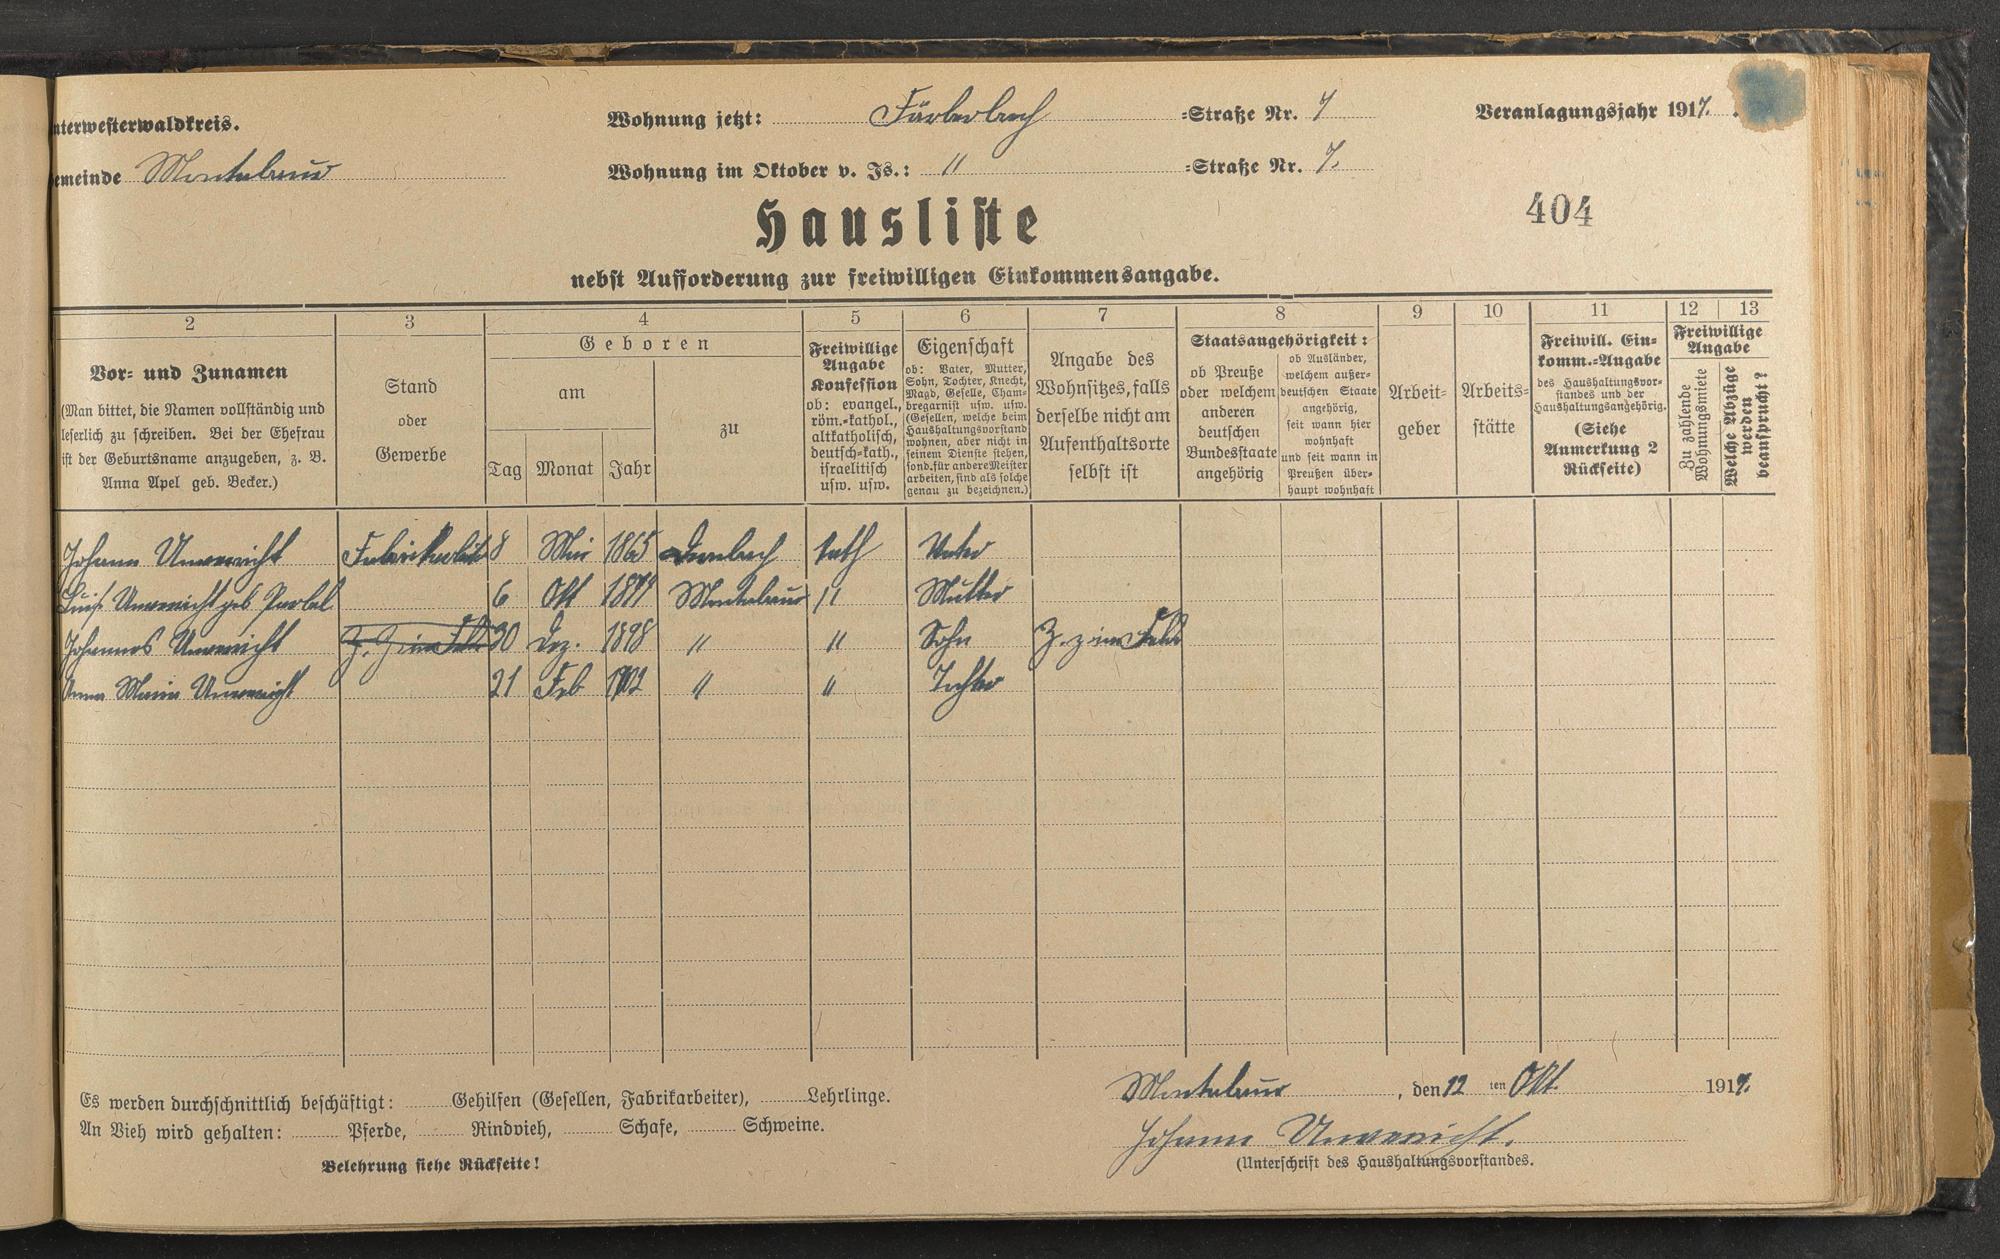 nterwesterwaldkreis.
Wohnung jetzt: Färberbach =Straße Nr. 7
Veranlagungsjahr 1917.
emeinde Montabaur
Wohnung im Oktober v. Js.: " =Straße Nr. 7.
404
Hausliste
nebst Aufforderung zur freiwilligen Einkommensangabe.
2 3 4 5 6 7 8 9 10 11 12 13
Vor- und Zunamen
(Man bittet, die Namen vollständig und
leserlich zu schreiben. Bei der Ehefrau
ist der Geburtsname anzugeben, z. B.
Anna Apel geb. Becker.)
Stand
oder
Gewerbe
Geboren
am
Tag Monat Jahr
zu
Freiwillige
Angabe
Konfession
ob: evangel.,
röm.-kathol.,
altkatholisch,
deutsch-kath.,
israelitisch
usw. usw.
Eigenschaft
ob: Vater, Mutter,
Sohn, Tochter, Knecht,
Magd, Geselle, Cham-
bregarnist usw. usw.
(Gesellen, welche beim
Haushaltungsvorstand
wohnen, aber nicht in
seinem Dienste stehen,
sond. für andere Meister
arbeiten, sind als solche
genau zu bezeichnen.)
Angabe des
Wohnsitzes, falls
derselbe nicht am
Aufenthaltsorte
selbst ist
Staatsangehörigkeit:
ob Preuße
oder welchem
anderen
deutschen
Bundesstaate
angehörig
ob Ausländer,
welchem außer-
deutschen Staate
angehörig,
seit wann hier
wohnhaft
und seit wann in
Preußen über-
haupt wohnhaft
Arbeit-
geber
Arbeits-
stätte
Freiwill. Ein-
komm.=Angabe
des Haushaltungsvor-
standes und der
Haushaltungsangehörig.
(Siehe
Anmerkung 2
Rückseite)
Freiwillige
Angabe
Zu zahlende
Wohnungsmiete
Welche Abzüge
werden
beansprucht?
Johann Unverricht 8 Mai 1865 Dernbach kath Vater
Unverricht geb 6 Okt Montabaur " Mutter
Johannes Unverricht Z. Z im Feld 30 Dez. 1898 " " Sohn Z. z im Feld
Anna Maria Unverricht 21 Feb 1902 " " Tochter
Es werden durchschnittlich beschäftigt: Gehilfen (Gesellen, Fabrikarbeiter), Lehrlinge.
An Vieh wird gehalten: Pferde, Rindvieh, Schafe, Schweine.
Belehrung siehe Rückseite!
Montabaur, den 12 ten Okt. 1917.
Johann Unverricht.
(Unterschrift des Haushaltungsvorstandes.